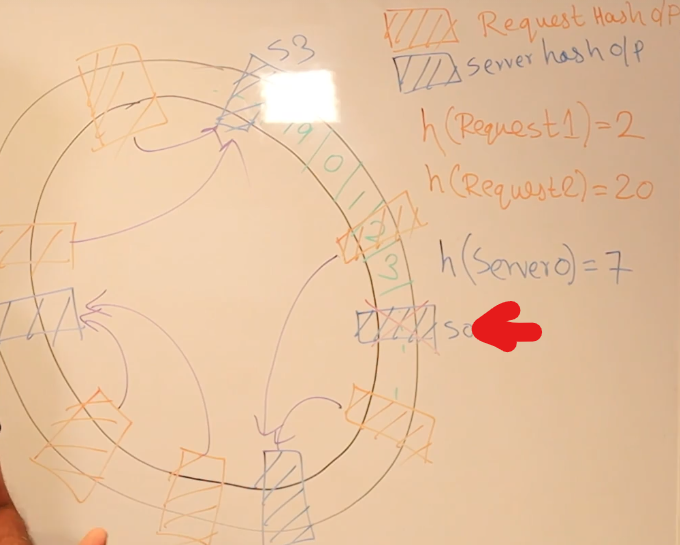 S3
Request Hash O/P
Server hash O/P
h(Request1)=2
h(Request2)=20
h(Server0)=7
9
0
1
2
3
S0